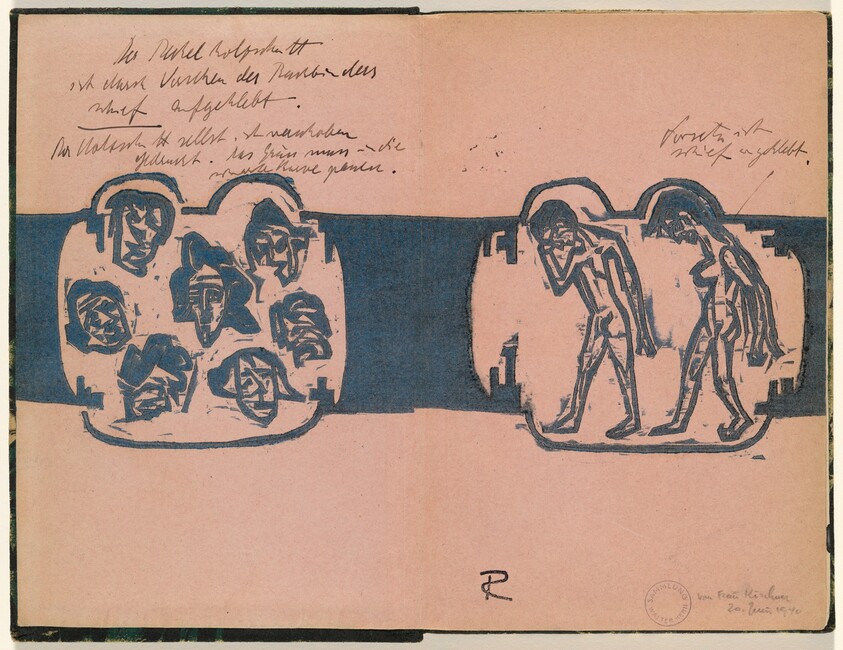 Der Deckel holzschnitt
ist durch Versehen des Buchbinders
schief aufgeklebt.
Der Holzschnitt selbst ist verschoben
gedruckt. das Grün muss in die
schwarze passen.
Vorsatz ist
schief angeklebt.
R
SAMMLUNG
von Frau Kirchner
20. Juni 1940